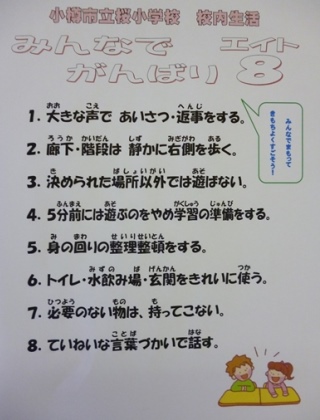 小樽市立桜小学校　校内生活
みんなで　エイト
がんばり　8
みんなでまもって
きもちよくすごそう！
1. 大きな声で　あいさつ・返事をする。
2. 廊下・階段は　静かに右側を歩く。
3. 決められた場所以外では遊ばない。
4. 5分前には遊ぶのをやめ学習の準備をする。
5. 身の回りの整理整頓をする。
6. トイレ・水飲み場・玄関をきれいに使う。
7. 必要のない物は、持ってこない。
8. ていねいな言葉づかいで話す。